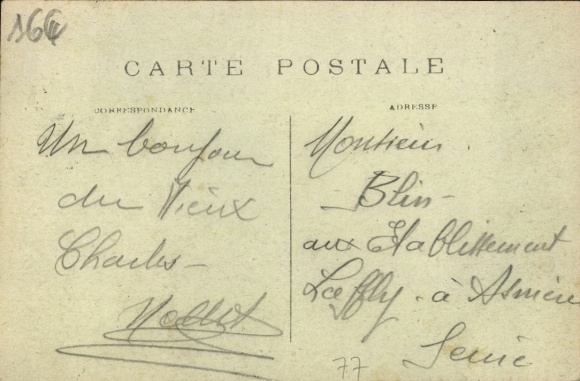 166
CARTE POSTALE
CORRESPONDANCE
ADRESSE
Un bonjour
du Vieux
Charles -
Monsieur
- Blin -
aux Etablissement
Laffly - à Asnière
Seine
77